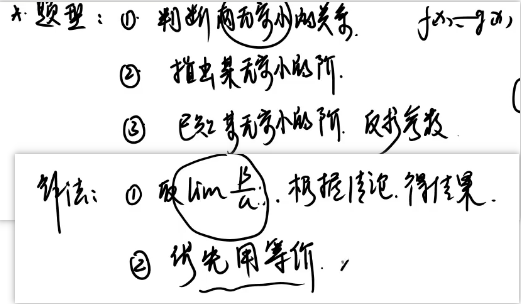 *. 题型: ① 判断两无穷小的关系. f(x)—g(x)
② 指出某无穷小的阶.
③ 已知某无穷小的阶. 反求参数
解法: ① 取 lim β/α. 根据结论. 得结果.
② 优先用等价.